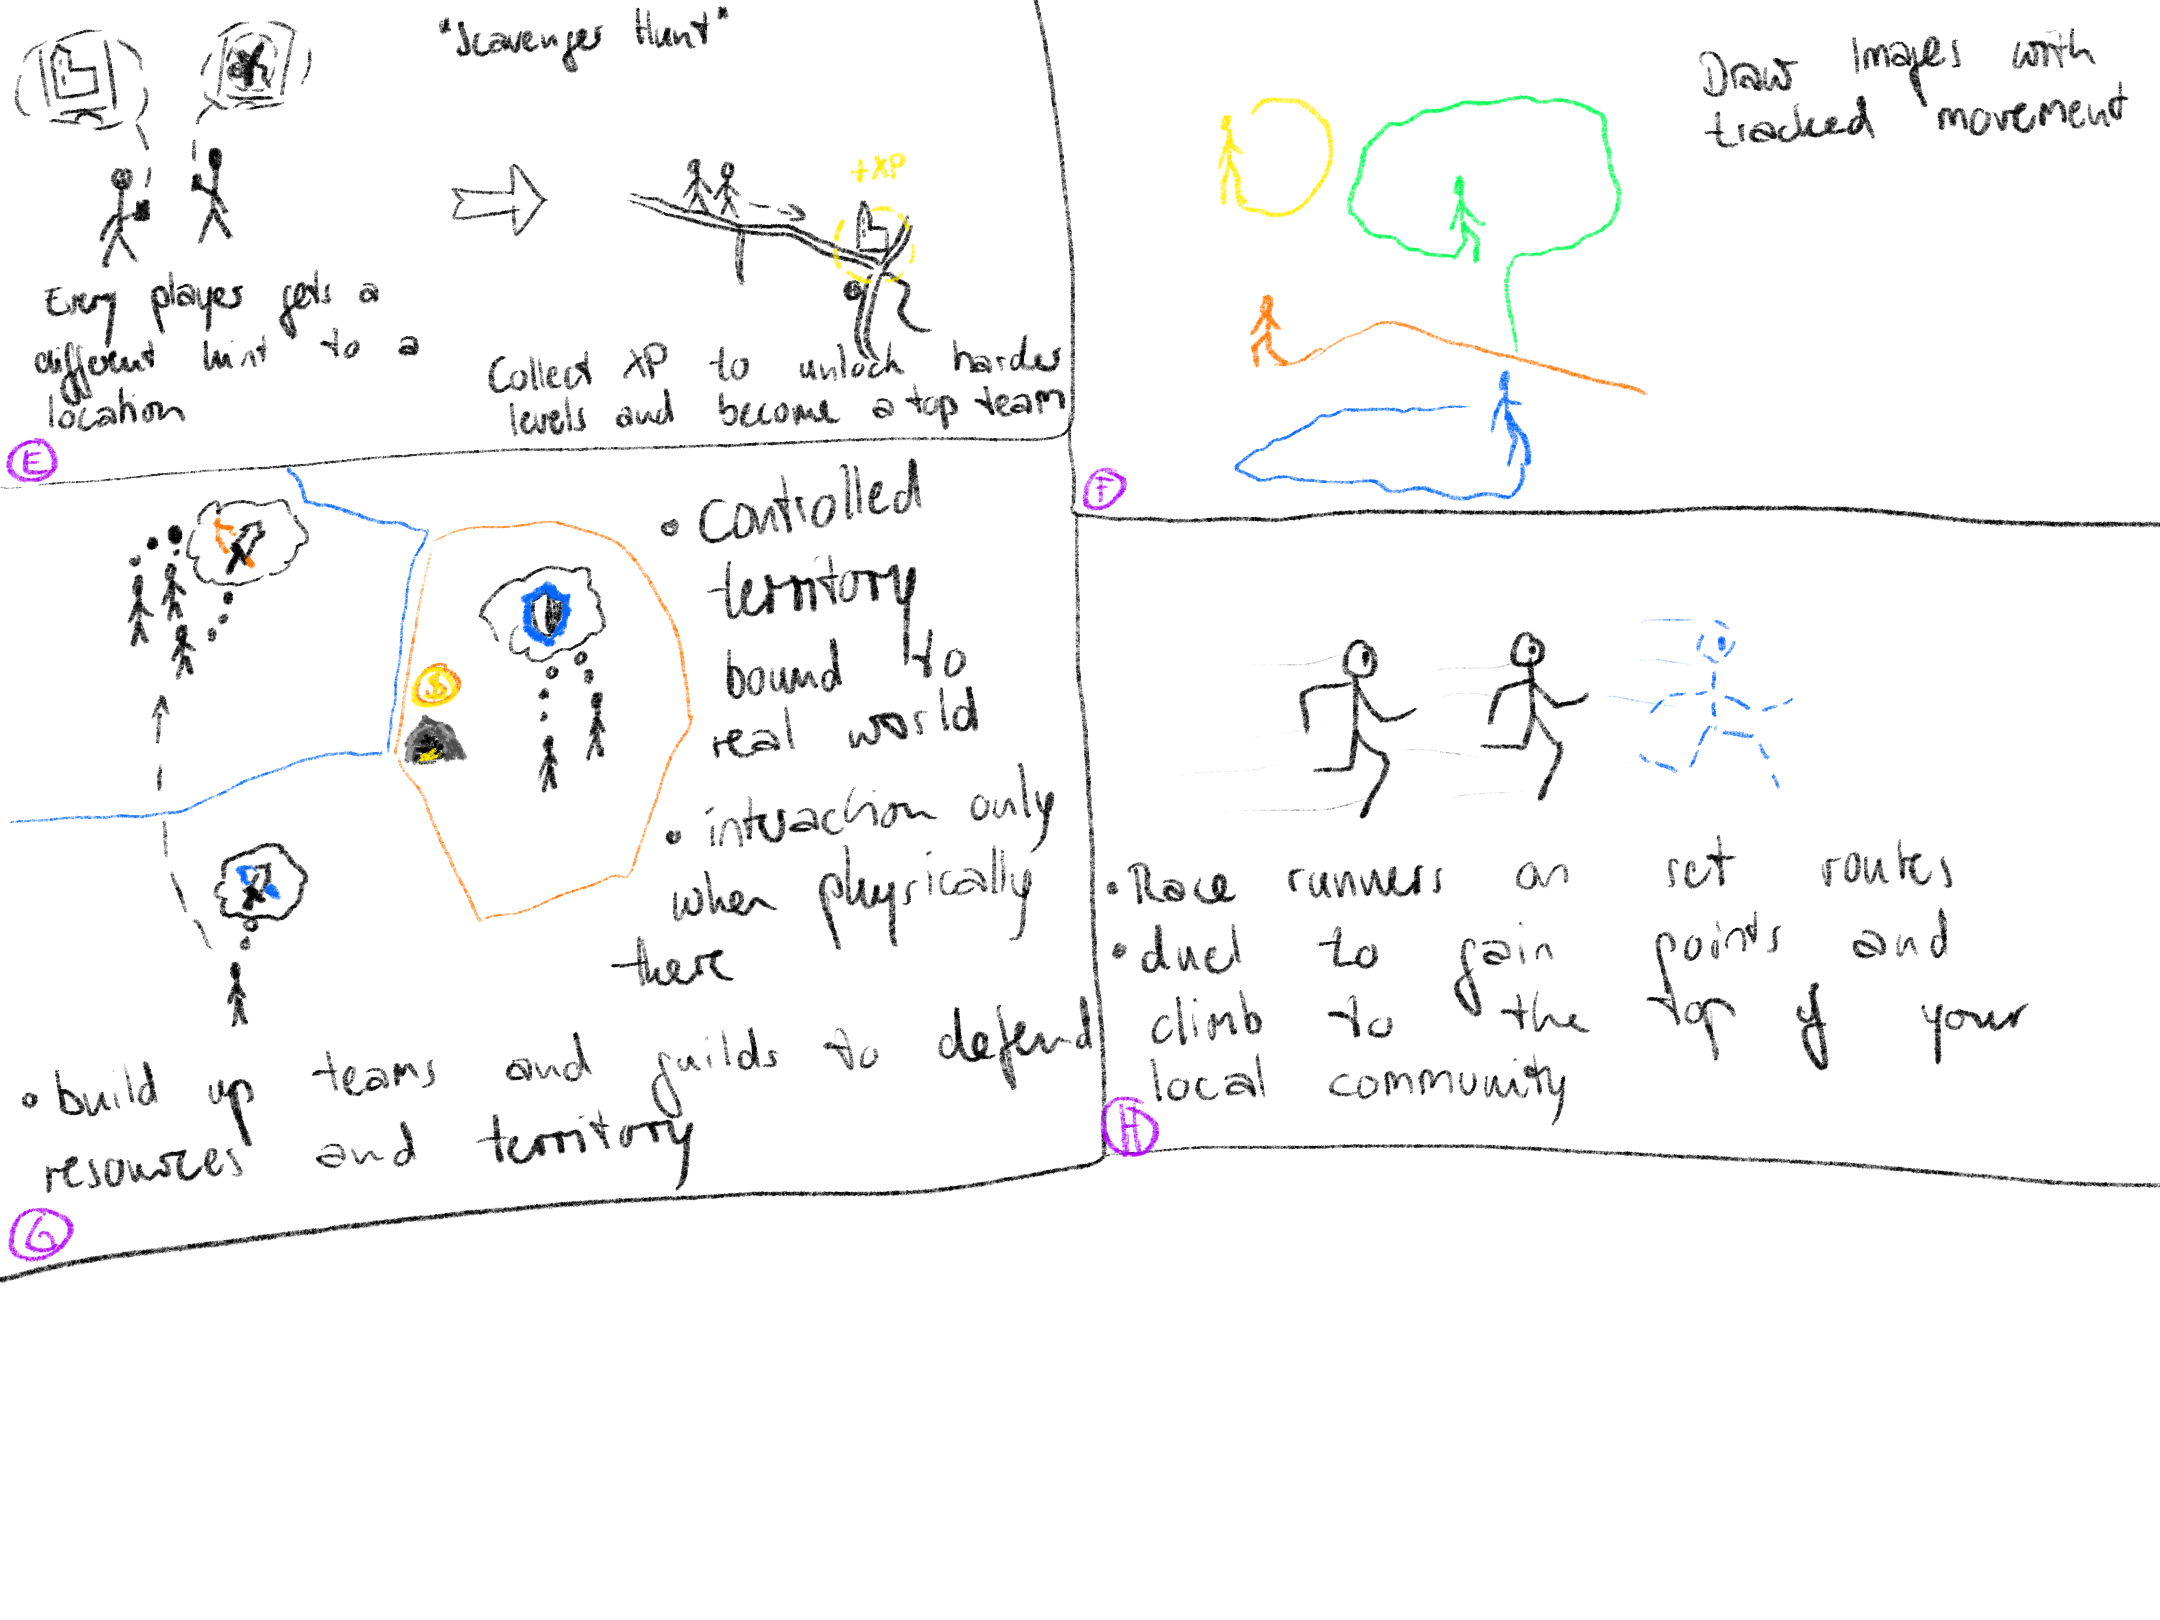 "Scavenger Hunt"
+XP
Every player gets a
different hint to a
location
Collect XP to unlock harder
levels and become a top team
E
Draw Images with
tracked movement
F
• Controlled
territory
bound to
real world
• interaction only
when physically
there
$
• build up teams and guilds to defend
resources and territory
G
• Race runners on set routes
• duel to gain points and
climb to the top of your
local community
H